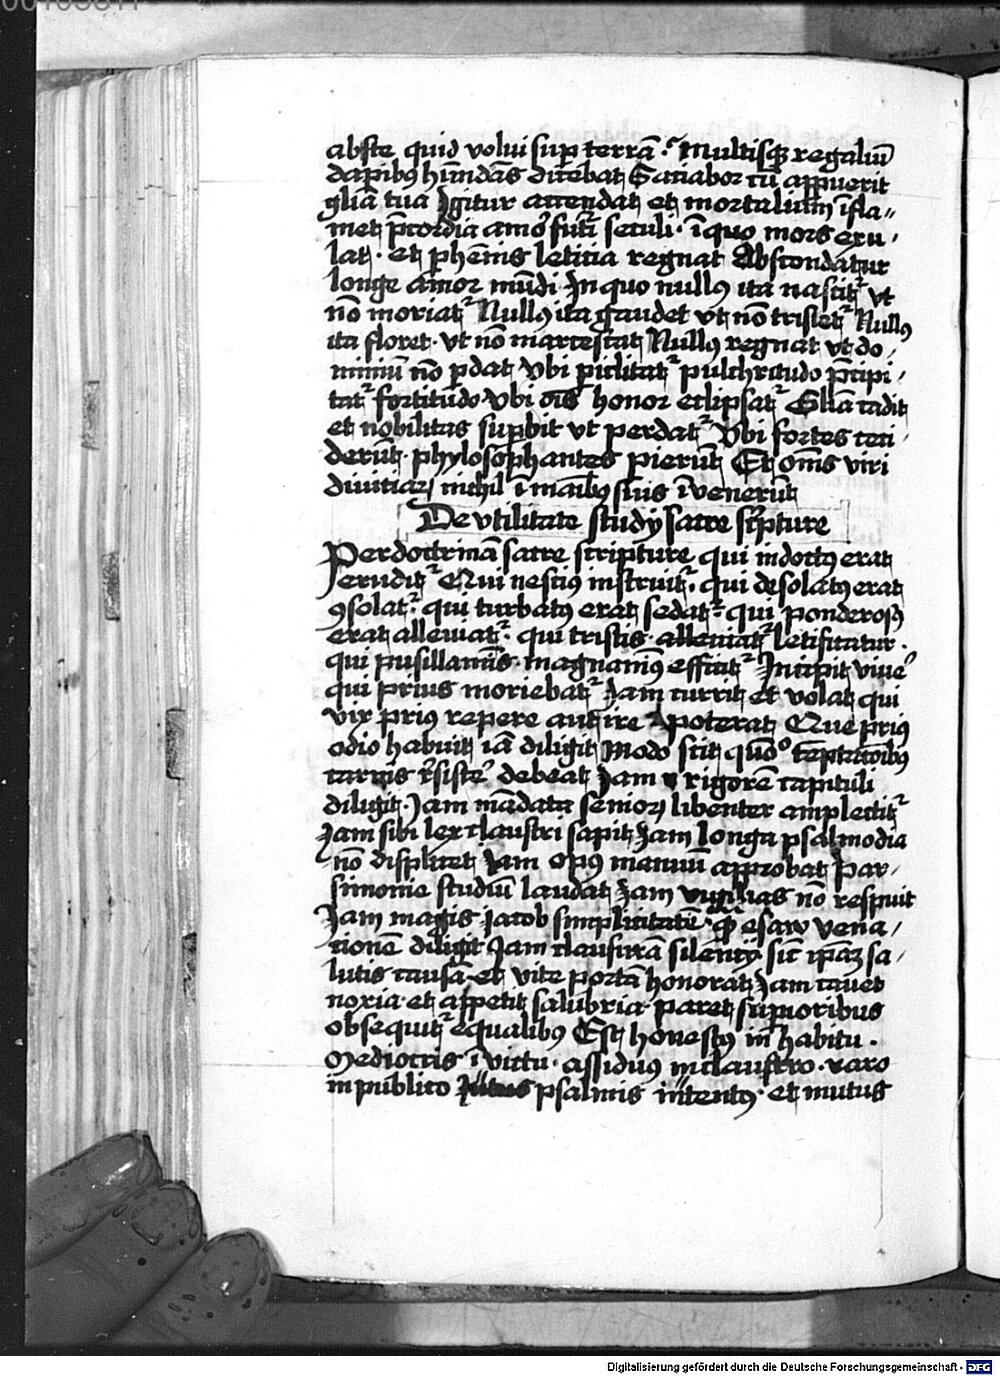 abste quid volui sup terrā · Multisqꝫ regaliū
dapibꝰ hūndās dicebat Saciabor cū appuerit
gliā tua Igitur attendat et mortalium īfla-
met p̄cordia amor futi seculi · ī quo mors exu-
lat · et phēnis leticia regnat Abscondatur
longe amor mūdi · In quo nullꝰ ita nascit᷑ vt
nō moriat᷑ Nullꝰ ita gaudet vt nō tristet᷑ Nullꝰ
ita floret · vt nō marcescat Nullꝰ regnat vt do-
miniū nō pdat Vbi piclitat᷑ pulchritudo p̄cipi-
tat᷑ fortitudo Vbi oīs honor eclipsat᷑ Gliā cadit
et nobilitas supbit vt perdat᷑ Vbi fortes ceci-
derūt · phylosophantes pierūt Et om̄s viri
diuitiaꝝ nichil ī manibꝰ suis īvenerūt
De vtilitate study sacre scrpture
Per doctrinā sacre scripture qui indoctꝰ erat
erudit᷑ Qui nesciꝰ instruit᷑ · qui desolatꝰ erat
ꝯsolat᷑ · qui turbatꝰ erat sedat᷑ · qui ponderosꝰ
erat alleuiat᷑ · qui tristis alleuiat᷑ letificatur ·
qui pusillanimis · magnanimꝰ efficit᷑ Incipit viue᷑
qui prius moriebat᷑ Jam currit et volat qui
vix priꝰ repere aut ire poterat Que priꝰ
odio habuit iā diligit Modo scit quo᷑ tēptacōibꝰ
carnis r̄siste᷑ debeat Jam rigorē capituli
diligit · Jam mādata senioꝝ libenter amplectit᷑
Jam sibi lex claustri sapit Jam longa psalmodia
nō displicet Jam opꝰ manuū approbat Par-
simonie studiū laudat Jam vigilias nō respuit
Jam magis jacob simplicitatē qꝫ esaw vena-
tionē diligit Jam clausurā silency sic ipaꝫ sa-
lutis causā et vite portā honorat Jam cauet
noxia et appetit salubria · paret supioribus
obsequit᷑ equalibꝰ Est honestꝰ in habitu ·
Mediocris ī victu · assiduus in claustro · raro
in publico psalmis intentꝰ · et mutus
Digitalisierung gefördert durch die Deutsche Forschungsgemeinschaft - DFG